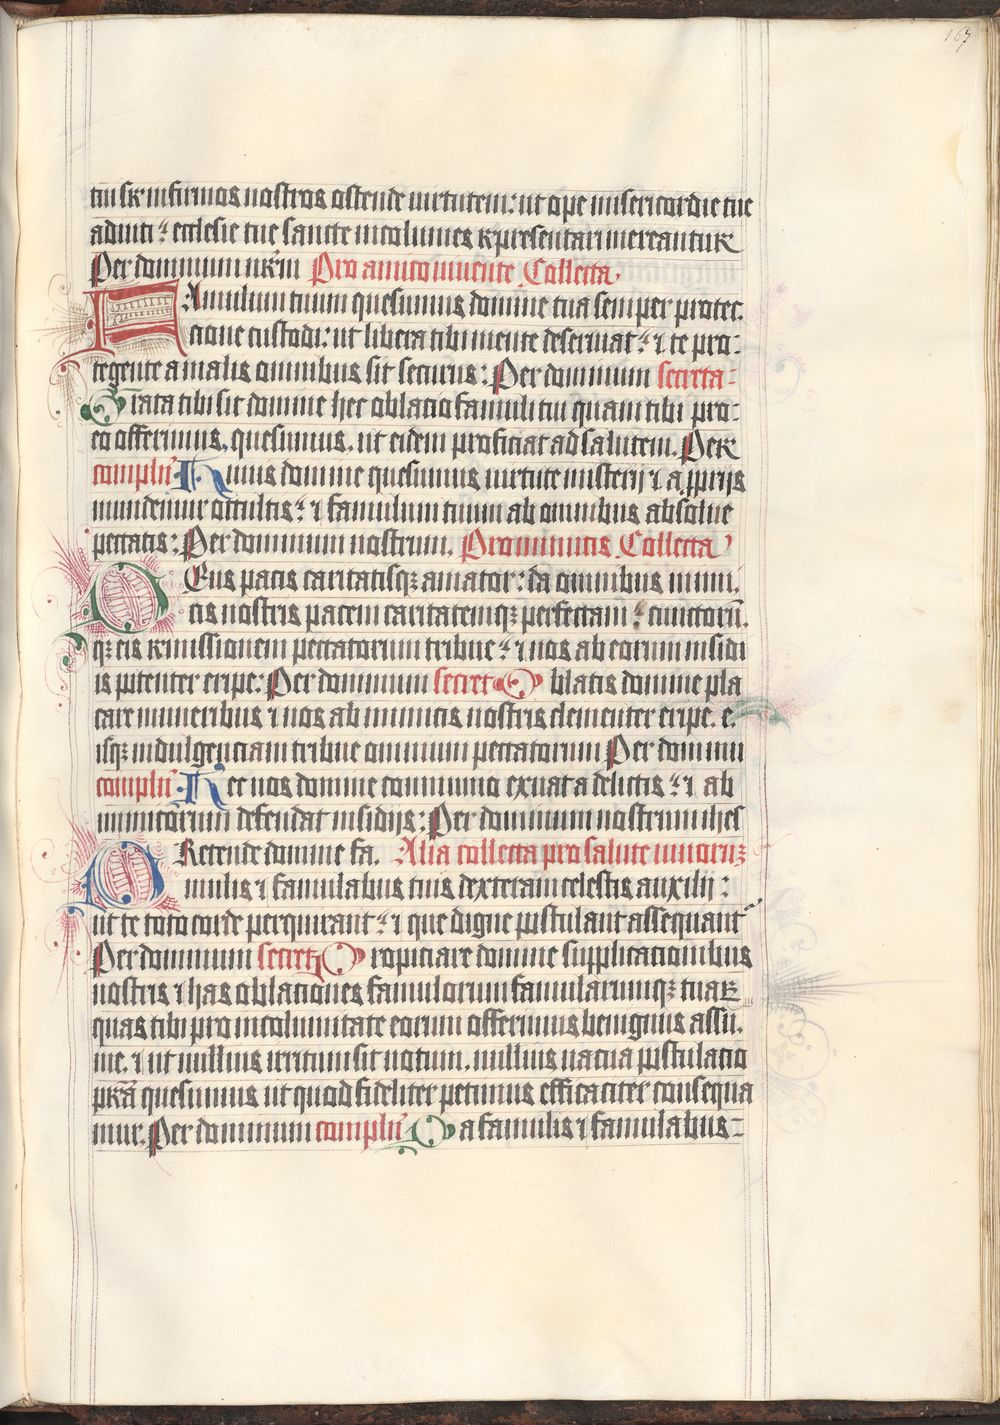 167
tui sr infirmos nostros ostende uirtutem: ut ope misericordie tue
adiuti : ecclesie tue sancte incolumes representari mereantur
Per dominum nrm Pro amico uiuente Collecta
FAmulum tuum quesumus domine tua semper protec:
tione custodi: ut libera tibi mente deseruiat : ⁊ te pro:
tegente a malis omnibus sit securus: Per dominum secreta:
Grata tibi sit domine hec oblatio famuli tui quam tibi pro:
eo offerimus, quesumus, ut eidem proficiat ad salutem. Per
compln Huius domine quesumus uirtute misterii ⁊ a pprijs
mundemur occultis : ⁊ famulum tuum ab omnibus absolue
peccatis: Per dominum nostrum. Pro inimicis Collecta
DEus pacis caritatisqꝫ amator: da omnibus inimi.
cis nostris pacem caritatemqꝫ perfectam : cunctorū.
qꝫ eis remissionem peccatorum tribue : ⁊ nos ab eorum insidi
is potenter eripe: Per dominum secret Oblatis domine pla
care muneribus ⁊ nos ab inimicis nostris clementer eripe. e.
isqꝫ indulgenciam tribue omnium peccatorum Per domini
compln Hec nos domine communio exuat a delictis : ⁊ ab
inimicorum defendat insidijs: Per dominum nostrum ihes
PRetende domine fa. Alia collecta pro salute uiuorꝝ
mulis ⁊ famulabus tuis dexteram celestis auxilij :
ut te toto corde perquirant : ⁊ que digne postulant assequant
Per dominum secret Propiciare domine supplicationibus
nostris ⁊ has oblationes famulorum famularumqꝫ tuaꝝ
quas tibi pro incolumitate eorum offerimus benignus assu.
me. ⁊ ut nullius irritum sit uotum, nullius uacua postulatio
prā quesumus ut quod fideliter petimus efficaciter consequa
mur. Per dominum compln Da famulis ⁊ famulabus: